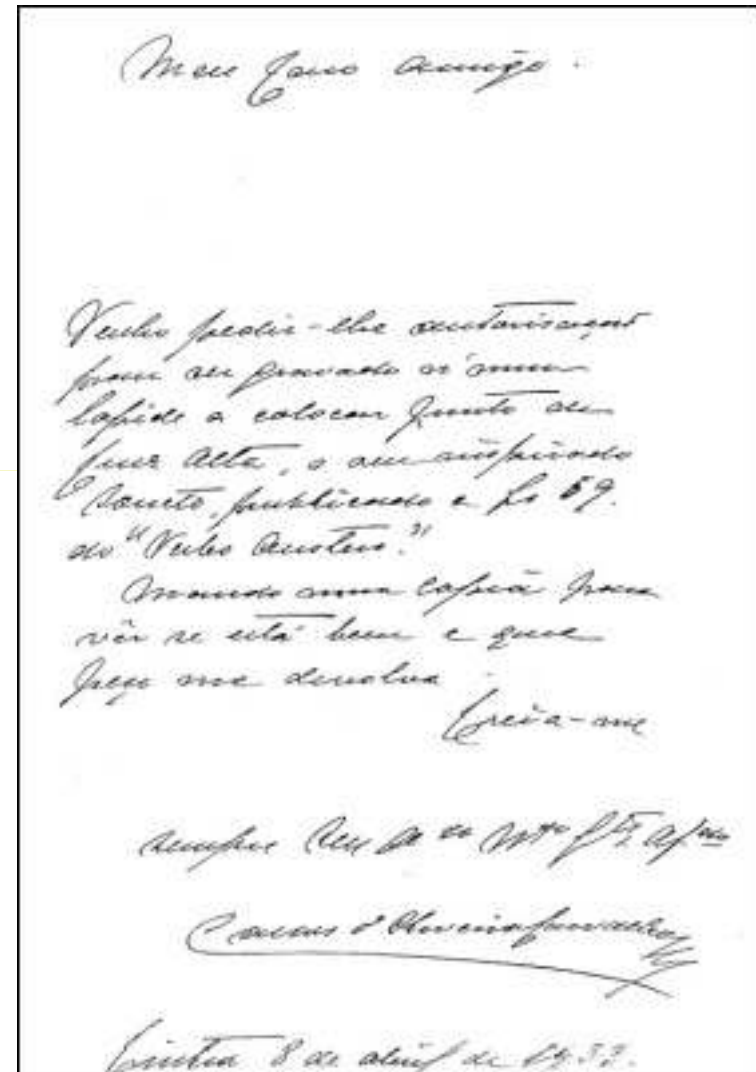 Meu Caro Amigo.
Venho pedir-lhe autorisação
para ser gravado n'uma
lapide a colocar junto da
Cruz Alta, o seu inspirado
Soneto, publicado a fs 69.
do "Verbo Austero."
Mando uma copia para
vêr se está bem e que
peço me devolva.
Creia-me
sempre Seu
Carlos d'Oliveira Carvalho
Cintra 8 de abril de 1933.